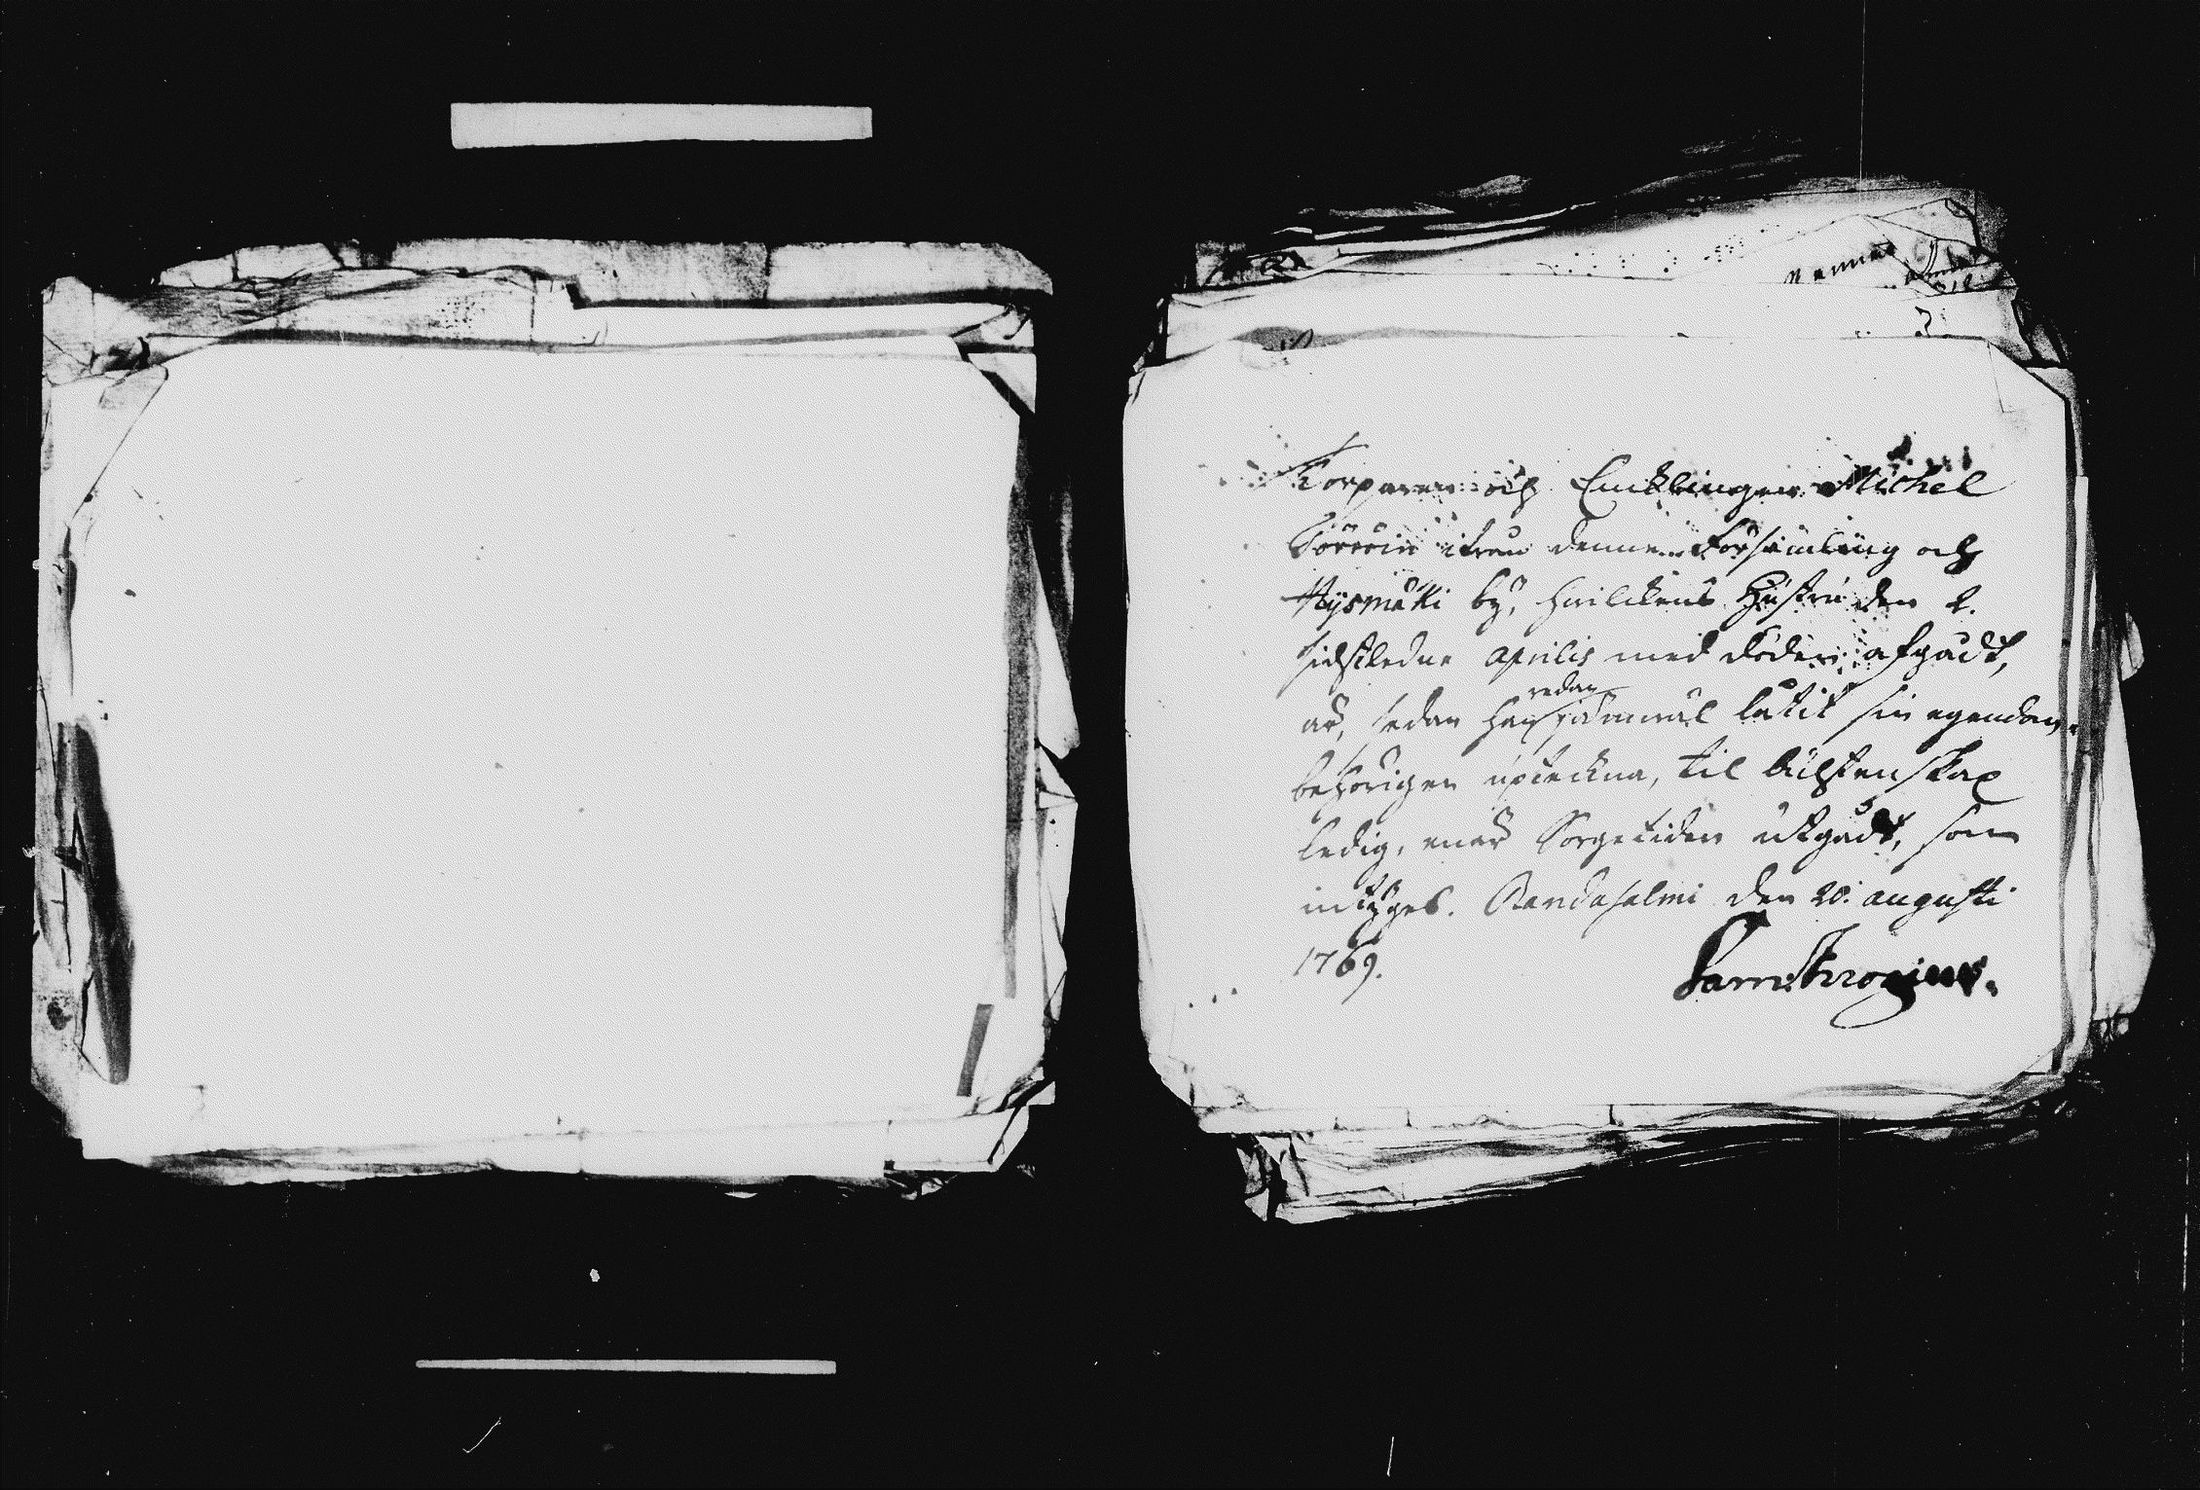 Torparen och Enklingen Michel
ifrån denne Församling och
Hysmäki by, hvilckens Hustru den 2.
sidstledne Aprilis med döden afgådt,
är, sedan han redan jämväl låtit sin egendom
behörigen upteckna, til ächtenskap
ledig, enär Sorgetiden utgådt, som
intÿges. Randasalmi den 28. augusti
1769.